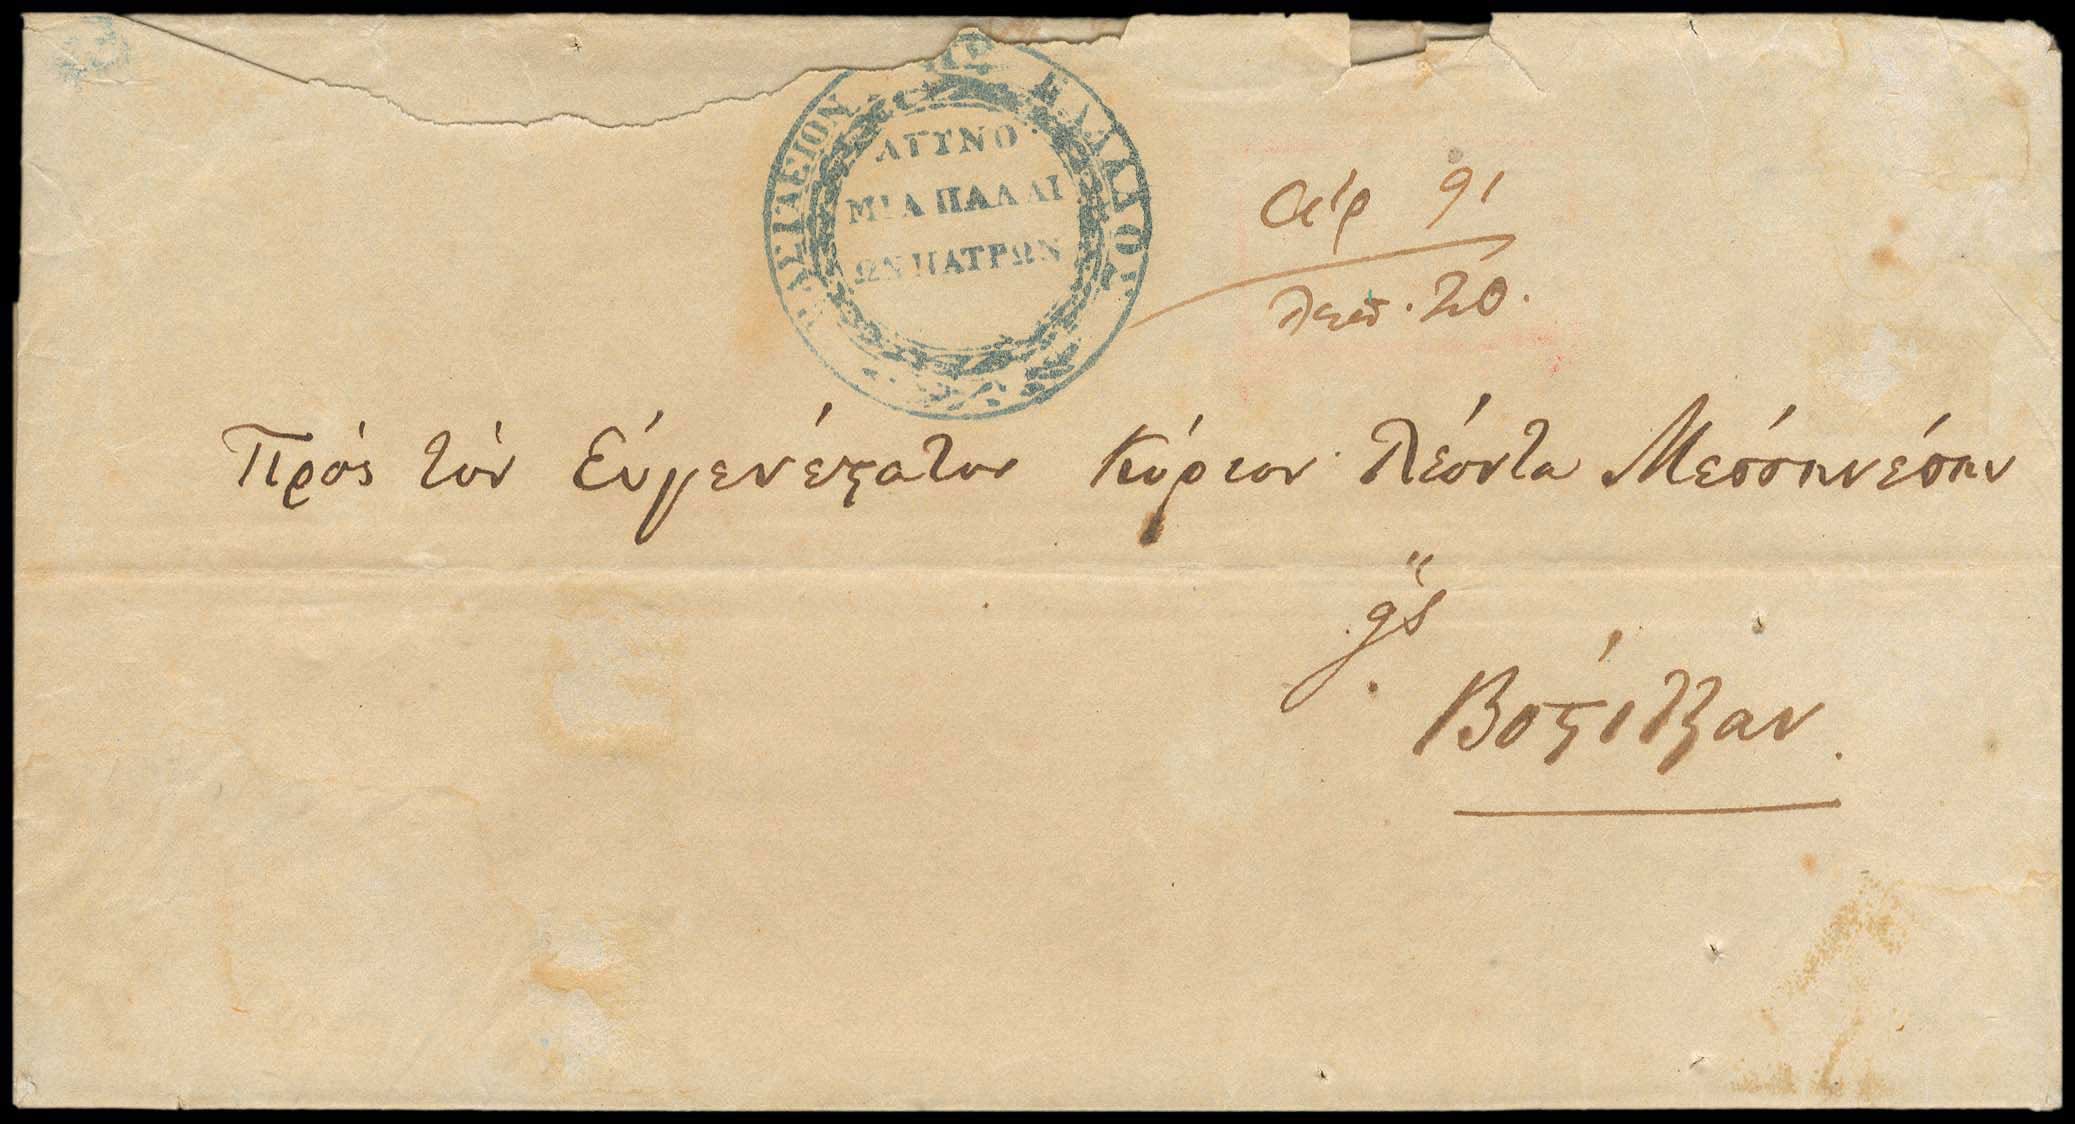 ΒΑΣΙΛΕΙΟΝ ΕΛΛΑΔΟΣ
ΑΣΤΥΝΟ
ΜΙΑ ΠΑΛΑΙ
ΩΝ ΠΑΤΡΩΝ
ἀρ 91
λεπ. 20.
Πρὸς τὸν Εὐγενέστατον Κύριον Λέοντα Μεσσηνέσην
εἰς
Βοστίτζαν.